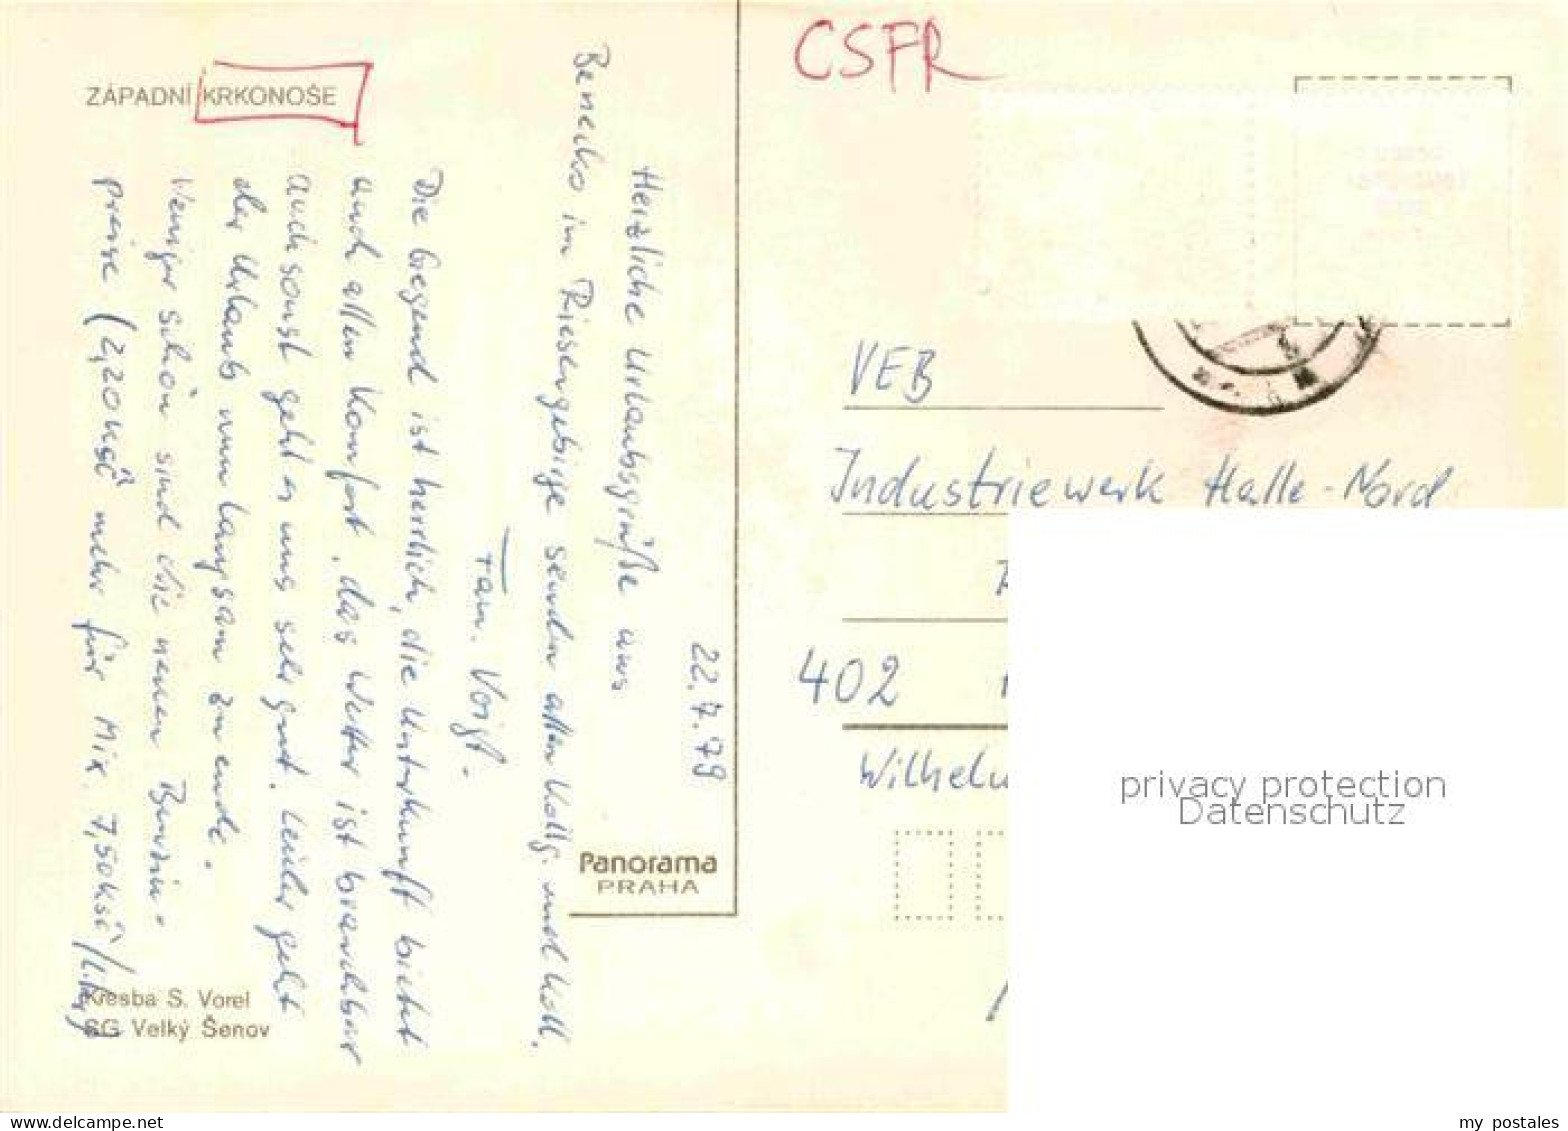 ZÁPADNÍ KRKONOŠE
CSFR
22.7.79
Herzliche Urlaubsgrüße aus
Benecko im Riesengebirge senden allen Kollg. und Koll.
Fam. Voigt.
Die Gegend ist herrlich, die Unterkunft bietet
auch allen Komfort, das Wetter ist brauchbar
auch sonst geht es uns sehr gut. Leider geht
der Urlaub nun langsam zu ende.
Weniger schön sind die neuen Benzin-
preise (2,20 Kčs mehr für Mix 7,50 Kčs/Liter)
Panorama
PRAHA
Kresba S. Vorel
SG Velký Šenov
VEB
Industriewerk Halle-Nord
402
Wilhelm
privacy protection
Datenschutz
my postales